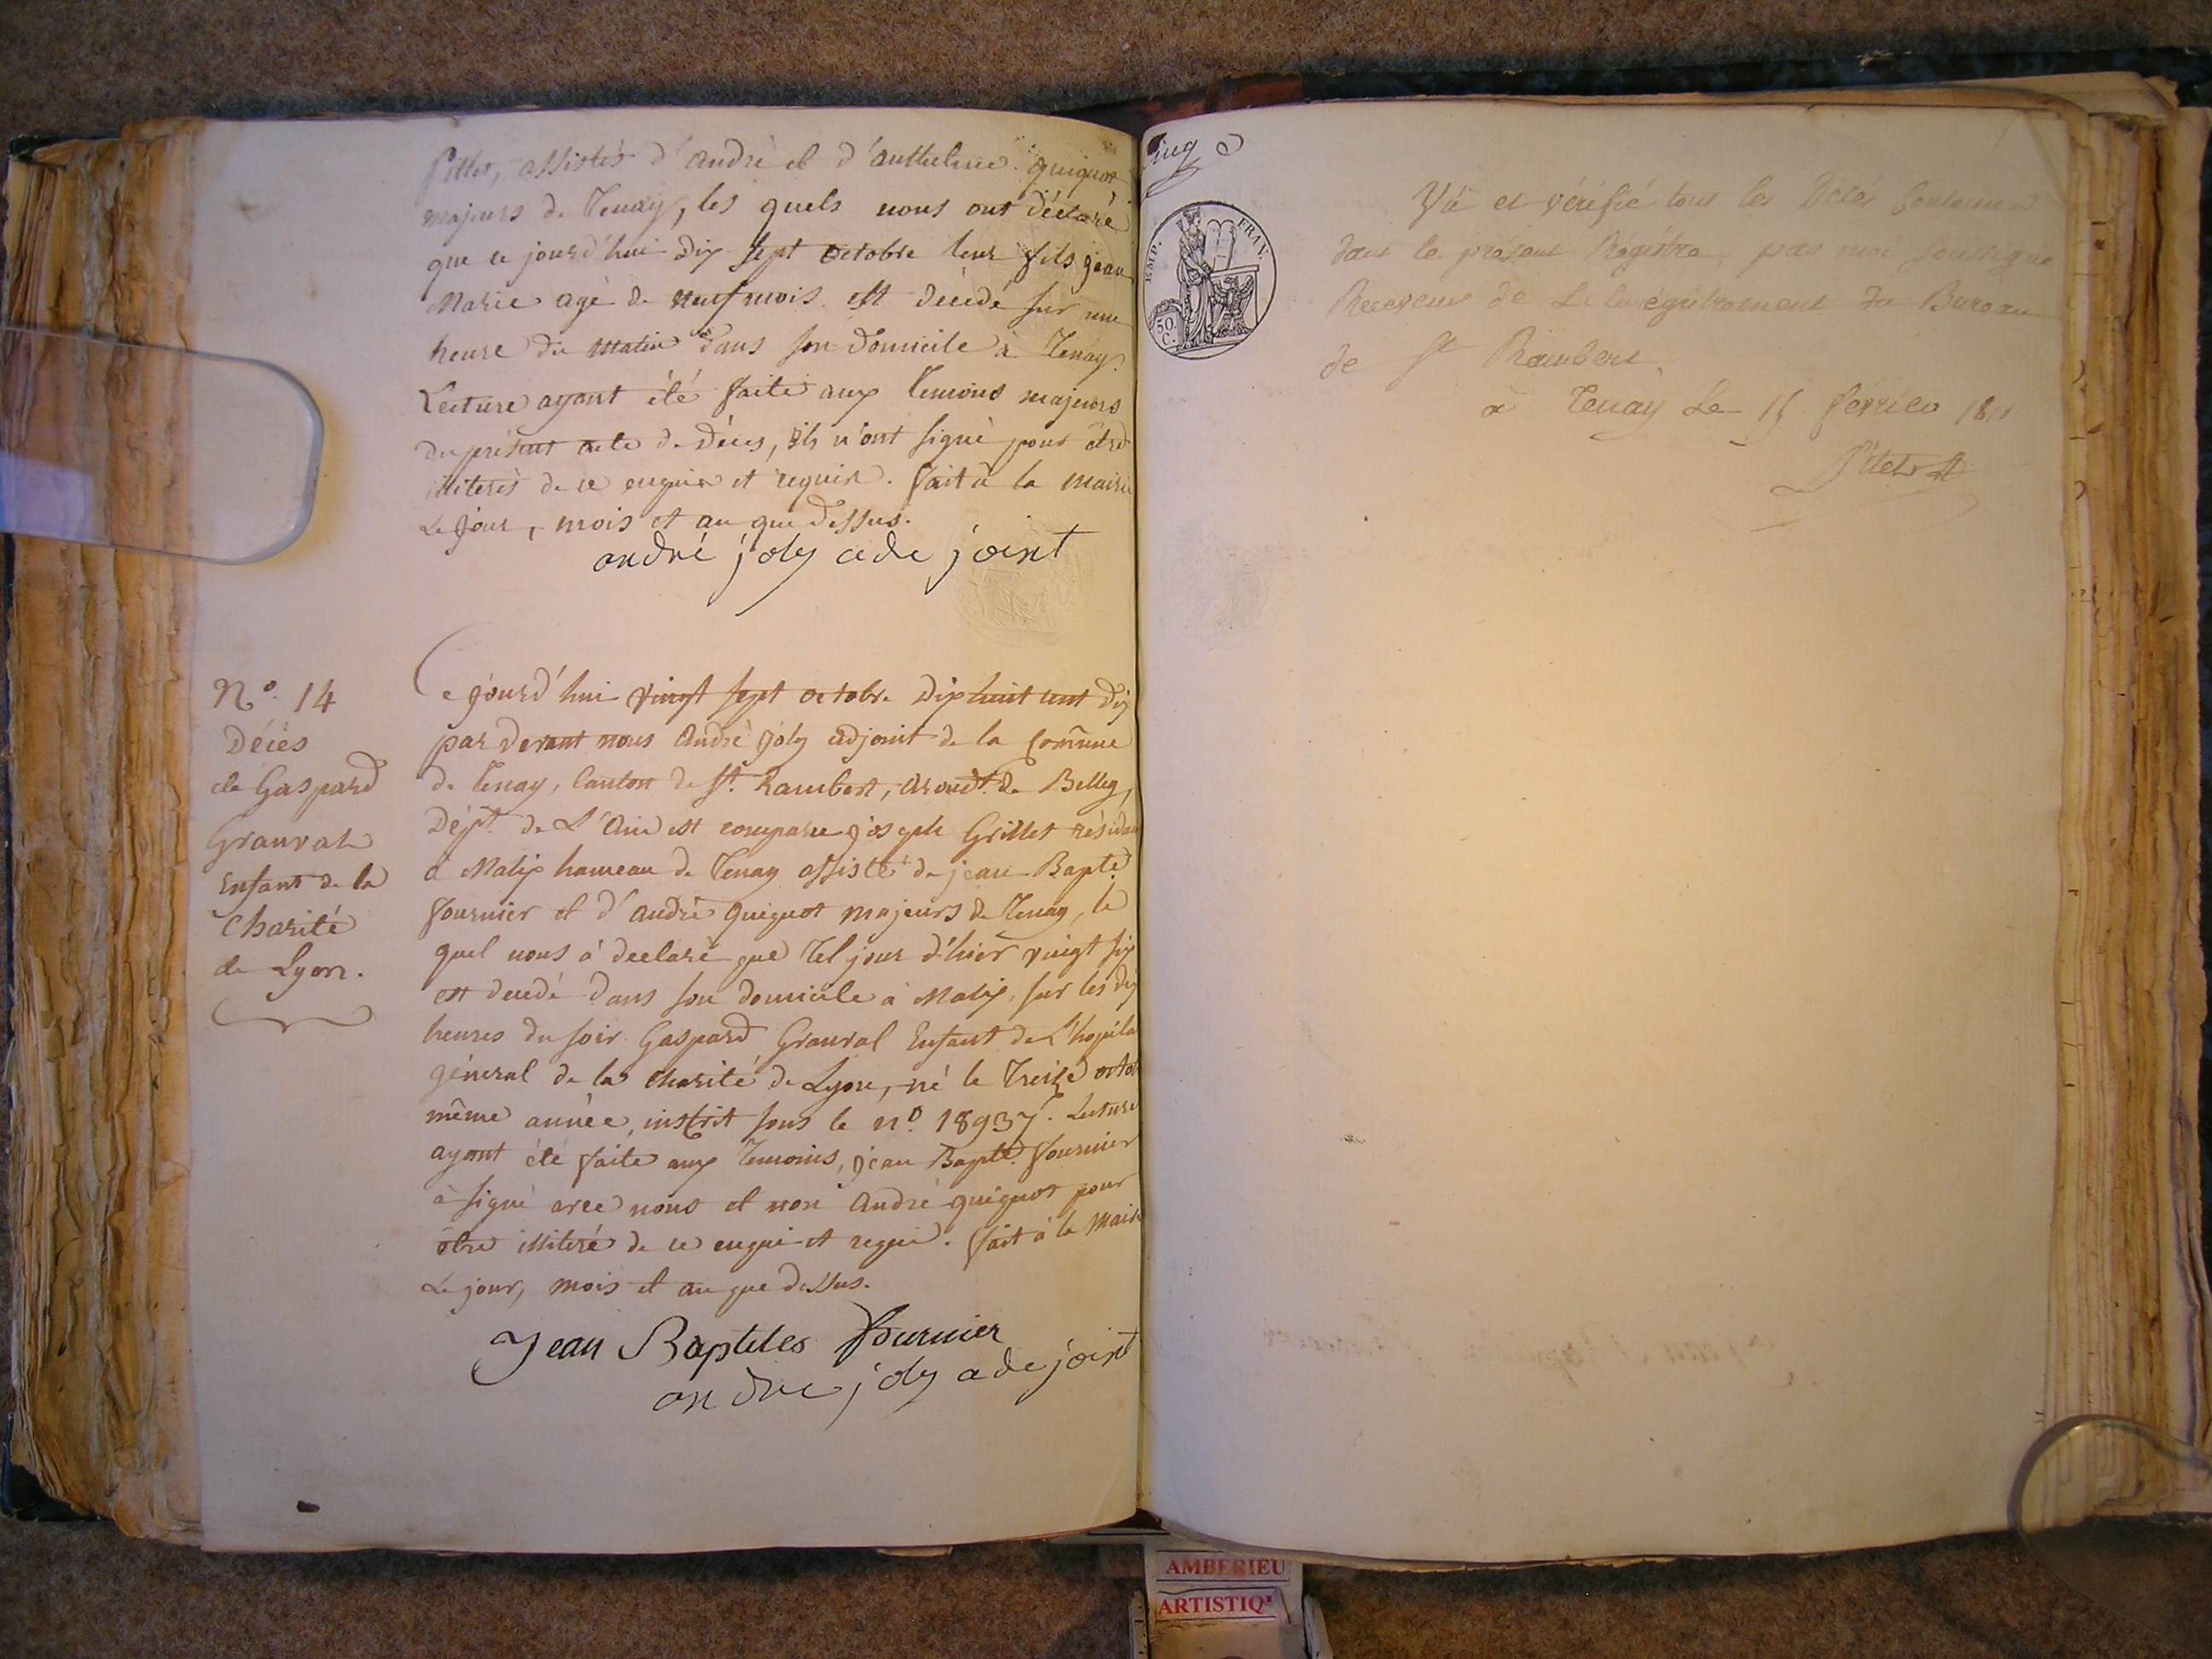 Pittet, assistés d'andré et d'anthelme quignot
majeurs de Tenay, les quels nous ont déclaré
que ce jourd'hui dix sept octobre leur fils jean
Marie agé de neuf mois est decedé sur une
heure du matin dans son domicile à Tenay.
Lecture ayant été faite aux temoins majeurs
du présent acte de Déces, ils n'ont signé pour être
illiterés de ce enquis et requis. fait à la mairie
Le jour, mois et an que dessus.
andré joly adejoint
N.º 14
Décés
de Gaspard
Granval
Enfant de la
Charité
de Lyon.
Ce jourd'hui vingt sept octobre dix huit cent dix
par devant nous andré joly adjoint de la comune
de Tenay, canton de St. Rambert, arondt. de Belley,
Dépt. de L'ain est comparu joseph Grillet résidan
à Malix hameau de Tenay assisté de jean Bapte.
fournier et d'andré quignot majeurs de Tenay, le
quel nous à declaré que Tel jour d'hier vingt six
est decedé dans son domicile à Malix, sur les dix
heures du soir Gaspard Granval Enfant de L'hopita
géneral de la charité de Lyon, né le Treize octob
même année, inscrit sous le n.º 18937. Lecture
ayant été faite aux temoins, jean Bapte. fournier
à signé avec nous et non andré quignot pour
être illiteré de ce enquis et requis. fait à la Mairie
Le jour, mois et an que dessus.
Jean Baptites fournier
andre joly adejoint
RMP. FRAN.
50.
C.
Vu et vérifié tous les Actes Contenus
dans le présent Régistre, par moi soussigné
Receveur de L'enrégistrement du Bureau
de St Rambert,
à Tenay Le 15 février 1811
AMBERIEU
ARTISTIQ'